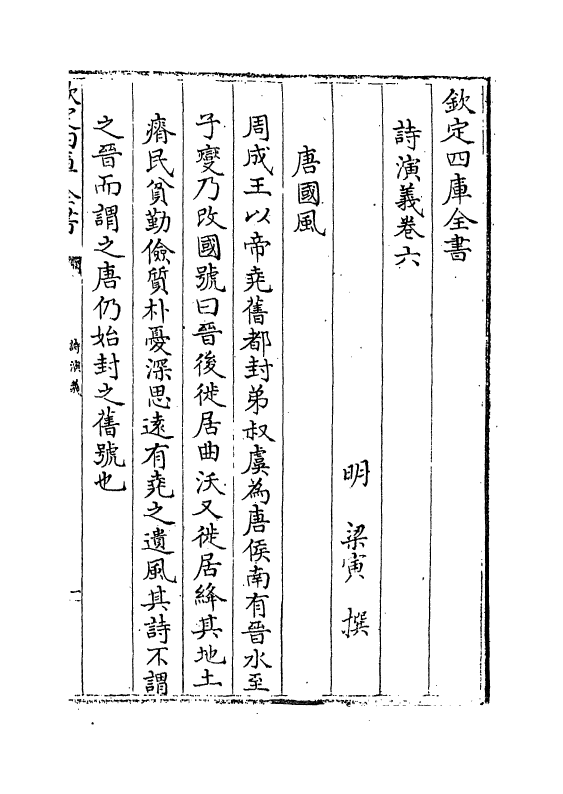 欽定四庫全書
詩演義卷六
明 梁寅 撰
唐國風
周成王以帝堯舊都封弟叔虞為唐侯南有晉水至
子燮乃改國號曰晉後徙居曲沃又徙居絳其地土
瘠民貧勤儉質朴憂深思遠有堯之遺風其詩不謂
之晉而謂之唐仍始封之舊號也
欽定四庫全書
詩演義
一